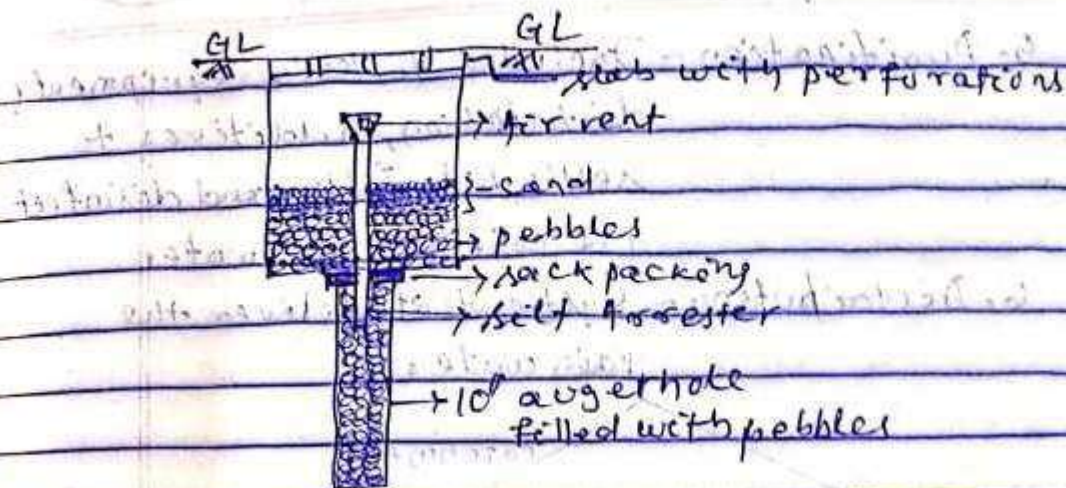 GL
GL
slab with perforations
Air vent
sand
pebbles
sack packing
silt Arrester
10" augerhole
filled with pebbles